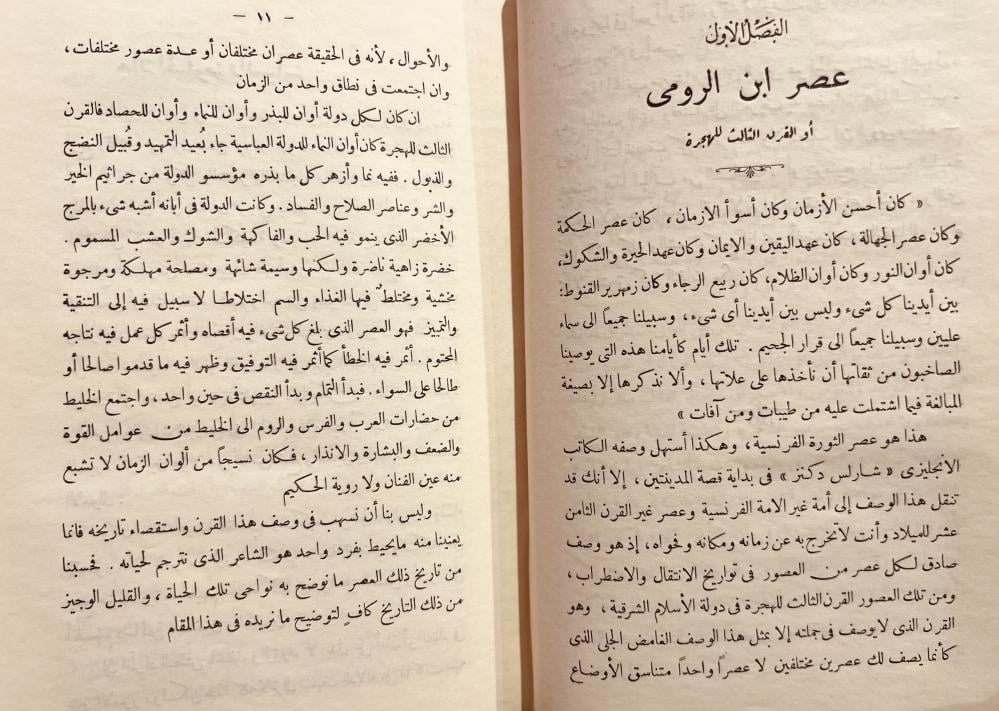 الفصل الأول
عصر ابن الرومى
أو القرن الثالث للهجرة
« كان أحسن الأزمان وكان أسوأ الازمان ، كان عصر الحكمة
وكان عصر الجهالة ، كان عهد اليقين والايمان وكان عهد الحيرة والشكوك،
كان أوان النور وكان أوان الظلام، كان ربيع الرجاء وكان زمهرير القنوط:
بين أيدينا كل شىء وليس بين أيدينا أى شىء ، وسبيلنا جميعاً الى سماء
عليين وسبيلنا جميعاً الى قرار الجحيم . تلك أيام كأيامنا هذه التى يوصينا
الصاخبون من ثقاتها أن نأخذها على علاتها ، وألا نذكرها إلا بصيغة
المبالغة فيما اشتملت عليه من طيبات ومن آفات »
هذا هو عصر الثورة الفرنسية ، وهكذا أستهل وصفه الكاتب
الانجليزى « شارلس دكنز » فى بداية قصة المدينتين ، إلا أنك قد
تنقل هذا الوصف إلى أمة غير الامة الفرنسية وعصر غير القرن الثامن
عشر للميلاد وأنت لا تخرج به عن زمانه ومكانه وفحواه ، إذ هو وصف
صادق لكل عصر من العصور فى تواريخ الانتقال والاضطراب ،
ومن تلك العصور القرن الثالث للهجرة فى دولة الأسلام الشرقية ، وهو
القرن الذى لا يوصف فى جملته إلا بمثل هذا الوصف الغامض الجلى الذى
كأنما يصف لك عصرين مختلفين لا عصراً واحداً متناسق الأوضاع
— ١١ —
والأحوال ، لأنه فى الحقيقة عصران مختلفان أو عدة عصور مختلفات ،
وان اجتمعت فى نطاق واحد من الزمان
ان كان لكل دولة أوان للبذر وأوان للنماء وأوان للحصاد فالقرن
الثالث للهجرة كان أوان النماء للدولة العباسية جاء بُعيد التمهيد وقُبيل النضج
والذبول . ففيه نما وأزهر كل ما بذره مؤسسو الدولة من جراثيم الخير
والشر وعناصر الصلاح والفساد . وكانت الدولة فى أبانه أشبه شىء بالمرج
الأخضر الذى ينمو فيه الحب والفاكهة والشوك والعشب المسموم .
خضرة زاهية ناضرة ولكنها وسيمة شائهة ومصلحة مهلكة ومرجوة
مخشية ومختلط فيها الغذاء والسم اختلاطا لا سبيل فيه إلى التنقية
والتمييز فهو العصر الذى بلغ كل شىء فيه أقصاه وأثمر كل عمل فيه نتاجه
المحتوم . أثمر فيه الخطأ كما أثمر فيه التوفيق وظهر فيه ما قدموا صالحا أو
طالحا على السواء . فبدأ التمام وبدأ النقص فى حين واحد ، واجتمع الخليط
من حضارات العرب والفرس والروم الى الخليط من عوامل القوة
والضعف والبشارة والانذار ، فكان نسيجاً من ألوان الزمان لا تشبع
منه عين الفنان ولا روية الحكيم
وليس بنا أن نسهب فى وصف هذا القرن واستقصاء تاريخه فانما
يعنينا منه ما يحيط بفرد واحد هو الشاعر الذى نترجم لحياته . فحسبنا
من تاريخ ذلك العصر ما نوضح به نواحى تلك الحياة ، والقليل الوجيز
من ذلك التاريخ كافٍ لتوضيح ما نريده فى هذا المقام